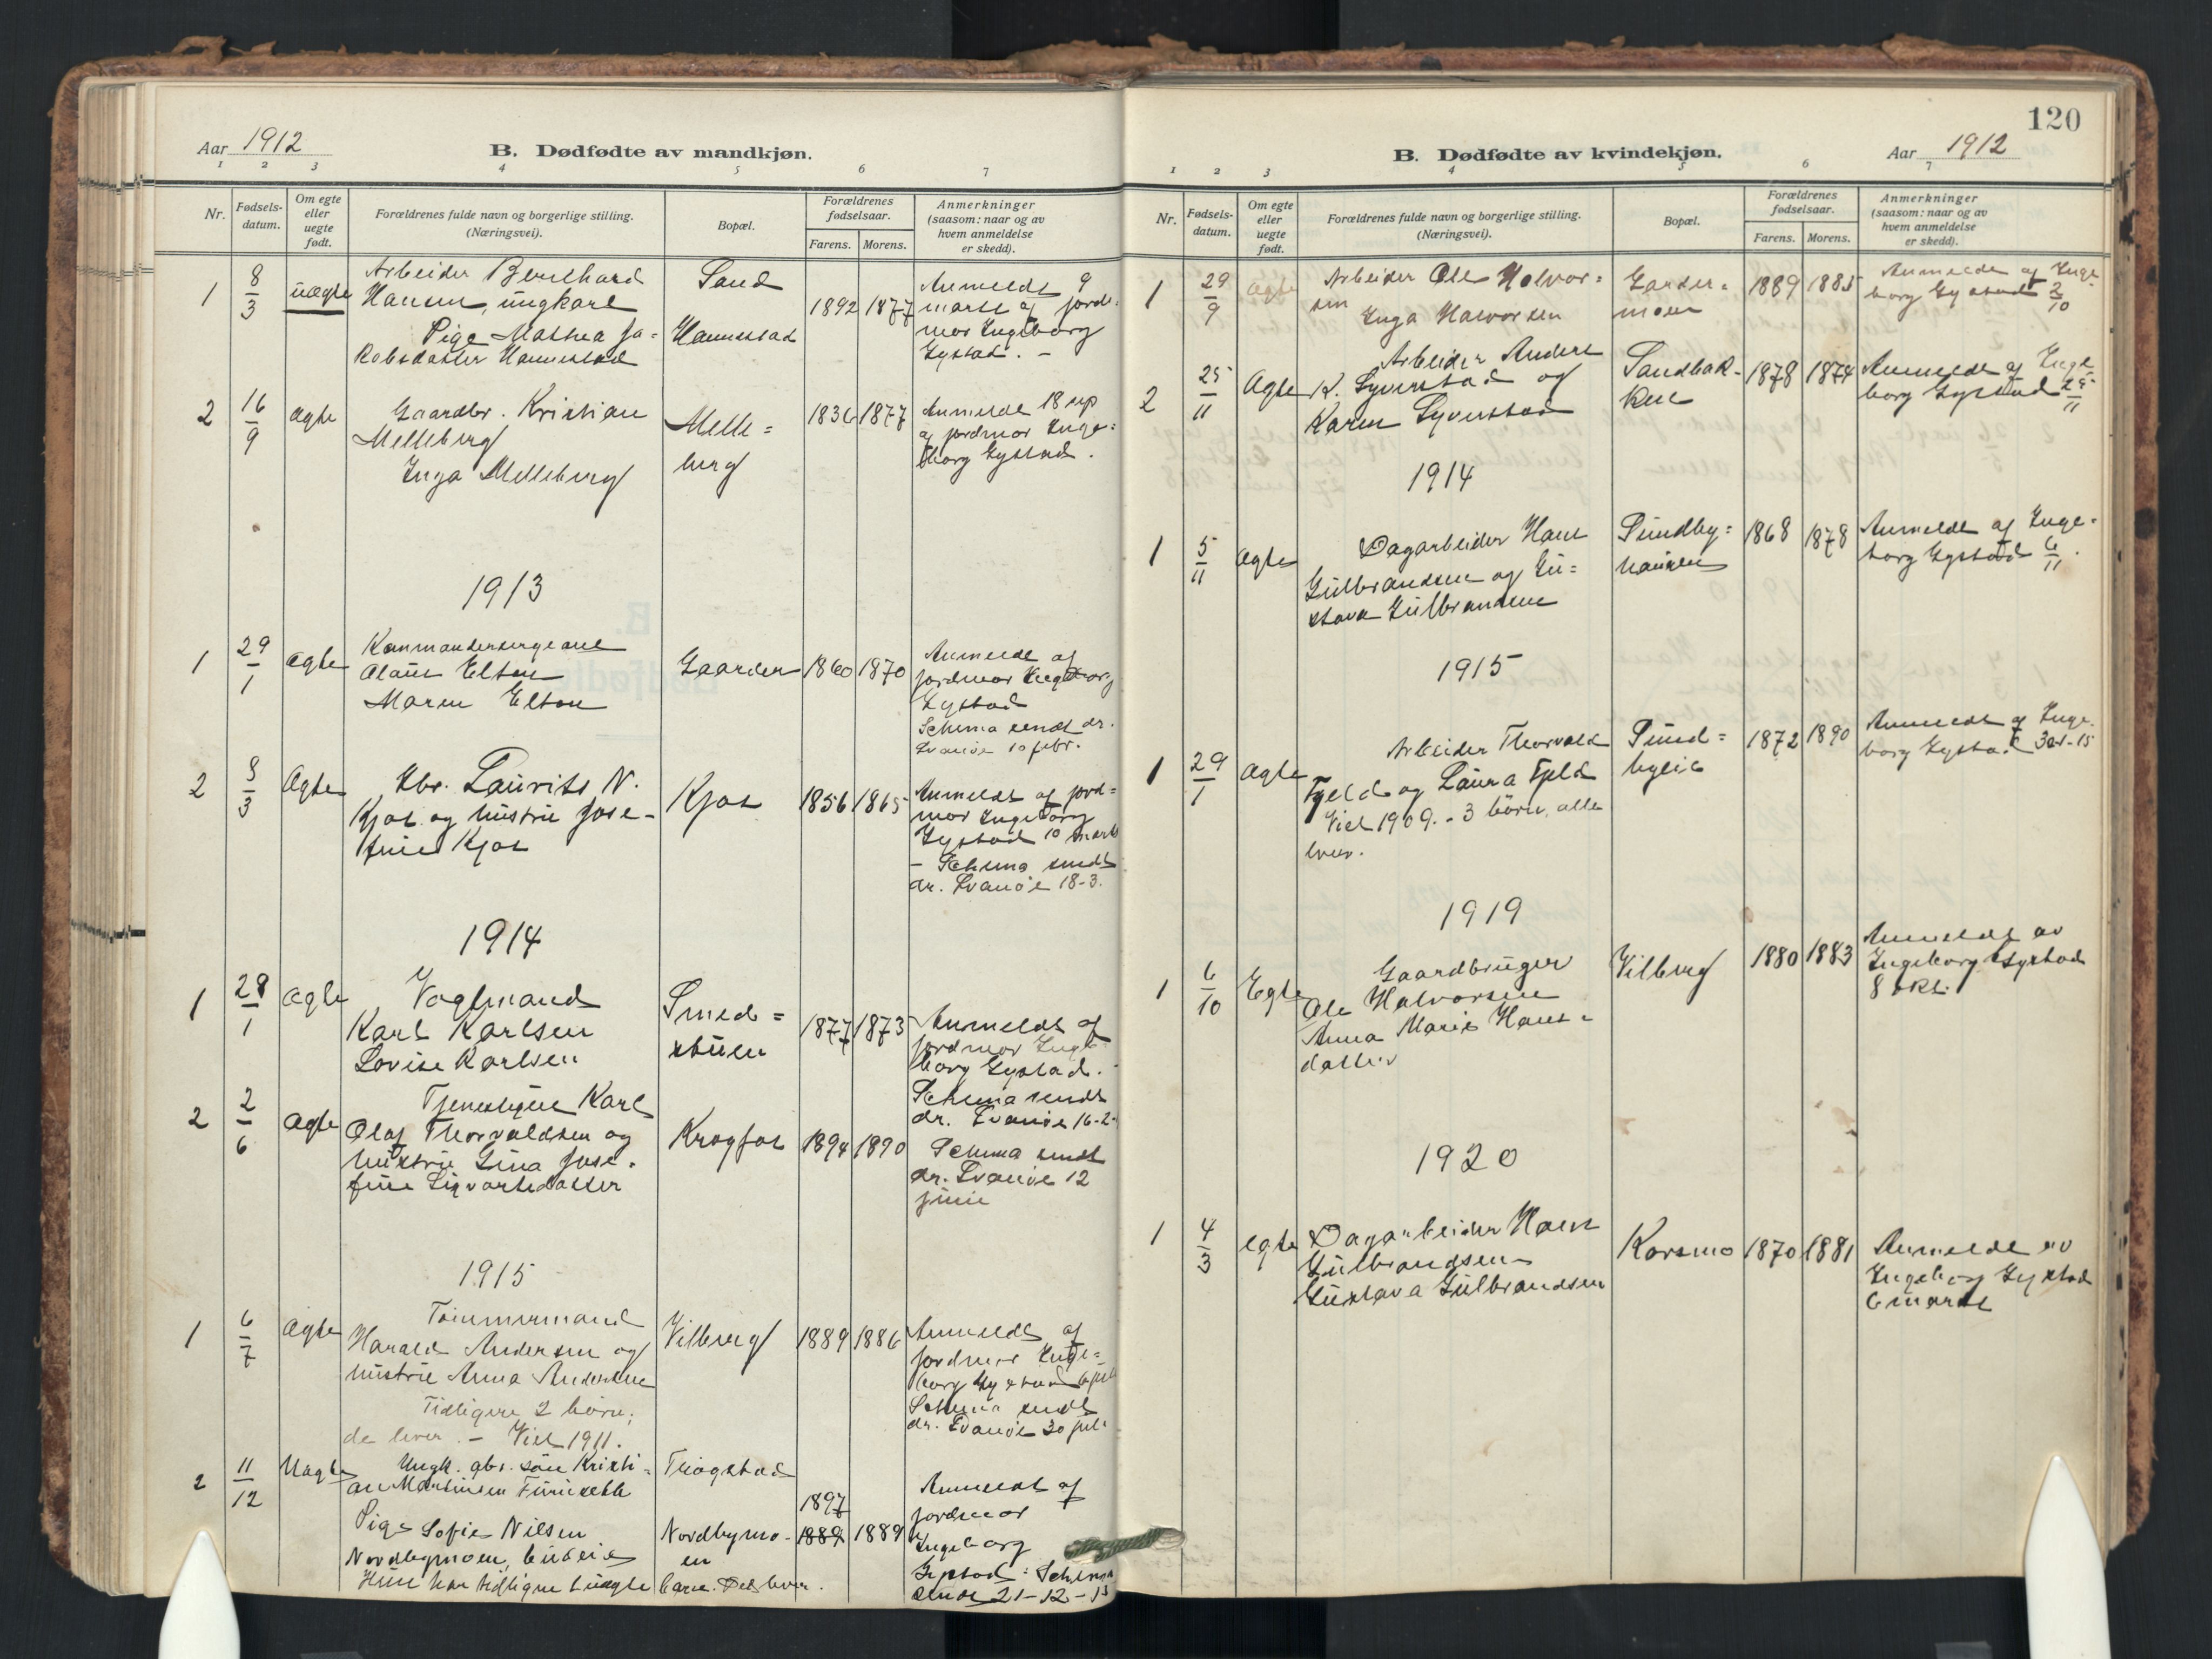 Aar 1912
B. Dødfødte av mandkjøn.
1 2 3 4 5 6 7
Nr.
Fødsels-
datum.
Om egte
eller
uegte
født.
Forældrenes fulde navn og borgerlige stilling.
(Næringsvei).
Bopæl.
Forældrenes
fødselsaar.
Farens. Morens.
Anmerkninger
(saasom: naar og av
hvem anmeldelse
er skedd).
1
8/3
uægte
Arbeider Bernhard
Hansen, ungkarl
Pige Mathea Ja-
kobsdatter Hannestad
Sand
Hannestad
1892 1877
Anmeldt 9
marts af jord-
mor Ingeborg
Gystad. -
2
16/9
ægte
Gaardbr. Kristian
Melleberg
Inga Melleberg
Melle=
berg
1836 1877
Anmeldt 18 sep
af jordmor Inge=
borg Gystad.
1913
1
29/1
ægte
Kommandersergeant
Olaus Elton
Maren Elton
Gaarder
1860 1870
Anmeldt af
jordmor Ingeborg
Gystad
Schema sendt dr.
Svanøe 10 febr.
2
8/3
Ægte
Gbr. Laurits N.
Kjos og hustru Jose-
fine Kjos
Kjos
1856 1865
Anmeldt af jord=
mor Ingeborg
Gystad 10 marts
- Schema sendt
dr. Svanøe 18-3.
1914
1
28/1
ægte
Vogtmand
Karl Karlsen
Lovise Karlsen
Smed=
stuen
1877 1873
Anmeldt af
jordmor Inge-
borg Gystad.
Schema sendt
dr. Svanøe 16-2-
2
2/6
ægte
Tjenestgut Karl
Olaf Thorvaldsen og
hustru Gina Jose-
fine Sigvartsdatter
Krogfos
1894 1890
Schema sendt
dr. Svanøe 12
juni
1915
1
6/7
ægte
Tømmermand
Harald Andersen og
hustru Anna Andersen
Tidligere 2 børn,
de lever. - Viet 1911.
Vilberg
1889 1886
Anmeldt af
jordmor Inge=
borg Gystad 6 juli
Schema sendt
dr. Svanøe 30 juli
2
11/12
Uægte
Ungk. gbr. søn Kristi=
an Martinsen Furuseth
Pige Sofie Nilsen
Nordbymoen, budeie
Hun har tidligere 1 uægte barn. Det lever.
Trogstad
Nordbymo-
en
1897
1889 1889
Anmeldt af
jordmor
Ingeborg
Gystad: Schema
sendt 21-12-15
120
B. Dødfødte av kvindekjøn.
Aar 1912
1 2 3 4 5 6 7
Nr.
Fødsels-
datum.
Om egte
eller
uegte
født.
Forældrenes fulde navn og borgerlige stilling.
(Næringsvei).
Bopæl.
Forældrenes
fødselsaar.
Farens. Morens.
Anmerkninger
(saasom: naar og av
hvem anmeldelse
er skedd).
1
29/9
ægte
Arbeider Ole Halvor=
sen
Inga Halvorsen
Garder-
moen
1889 1885
Anmeldt af Inge-
borg Gystad 2/10
2
25/11
Ægte
Arbeider Anders
K. Syverstad og
Karen Syverstad
Sandbak-
ken
1878 1874
Anmeldt af Inge
borg Gystad 25/11
1914
1
5/11
ægte
Dagarbeider Hans
Gulbrandsen og Gu=
stava Gulbrandsen
Sundby=
haugen
1868 1878
Anmeldt af Inge=
borg Gystad 6/11.
1915
1
29/1
ægte
Arbeider Thorvald
Fjeld og Laura Fjeld
Viet 1909. - 3 børn, alle
lever.
Sund=
byeie
1872 1890
Anmeldt af Inge-
borg Gystad 30/1-15
1919
1
6/10
Egte
Gaardbruger
Ole Halvorsen
Anna Marie Hans-
datter
Vilberg
1880 1883
Anmeldt av
Ingeborg Gystad
8 okt.
1920
1
4/3
egte
Dagarbeider Hans
Gulbrandsen
Gustava Gulbrandsen
Korsmo
1870 1881
Anmeldt av
Ingeborg Gystad
6 marts